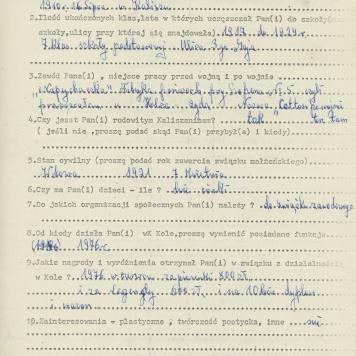 1910 r. 16 Lipca w Kaliszu
2.Ilość ukończonych klas,lata w których uczęszczał Pan(i) do szkoły
szkoły,ulicy przy której się znajdowała) 1917 do 1924 r.
7 klas szkoły podstawowej Ulica 3-go Maja
3.Zawód Pana(i) , miejsce pracy przed wojną i po wojnie
Nr 5
pracowałam u
4.Czy jest Pan(i) rodowitym Kaliszaninem? tak
( jeśli nie ,proszę podać skąd Pan(i) przybył(a) i kiedy)
5.Stan cywilny (proszę podać rok zawarcia związku małżeńskiego)
Wdowa 1931 7 Kwietnia
6.Czy ma Pan(i) dzieci - ile ? dwi córki
7.Do jakich organizacji społecznych Pan(i) należy ? do związku zawodowego
8.Od kiedy działa Pan(i) wK Kole,proszę wymienić posiadane funkcje
1976 r
9.Jakie nagrody i wyróżnienia otrzymał Pan(i) w związku z działalnością
w Kole ? 1976 800 zł
i za 600 zł, i na 10 lecie dyplom
i wazon
10.Zainteresowania - plastyczne , twórczość poetycka, inne nie